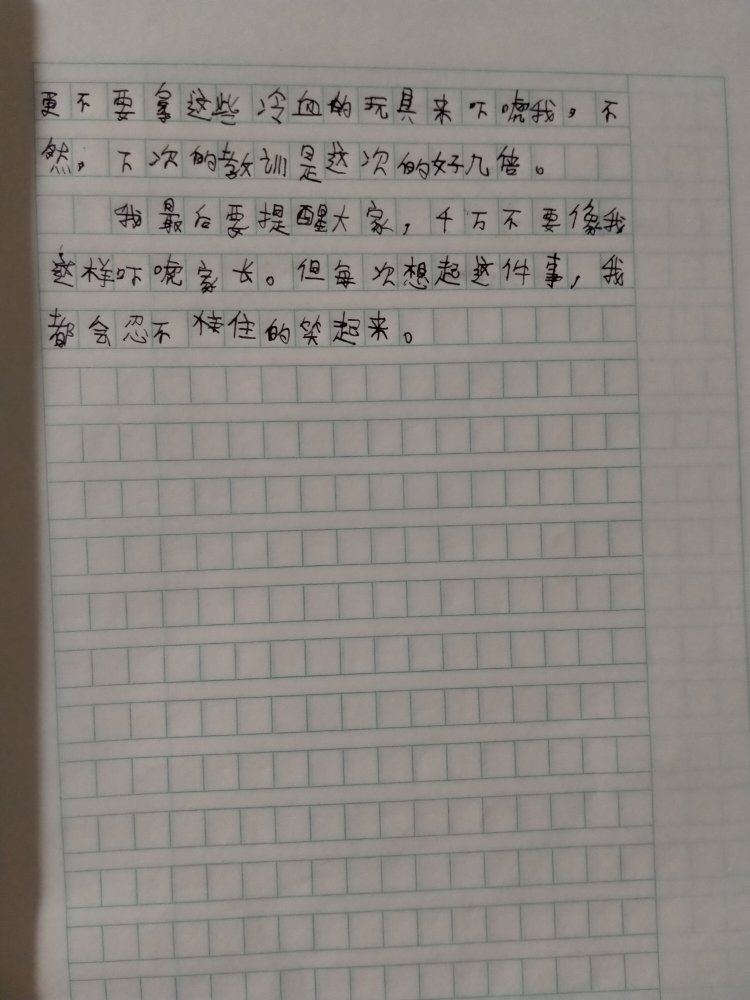 更不要拿这些冷血的玩具来吓唬我，不
然，下次的教训是这次的好几倍。
我最后要提醒大家，千万不要像我
这样吓唬家长。但每次想起这件事，我
都会忍不住的笑起来。